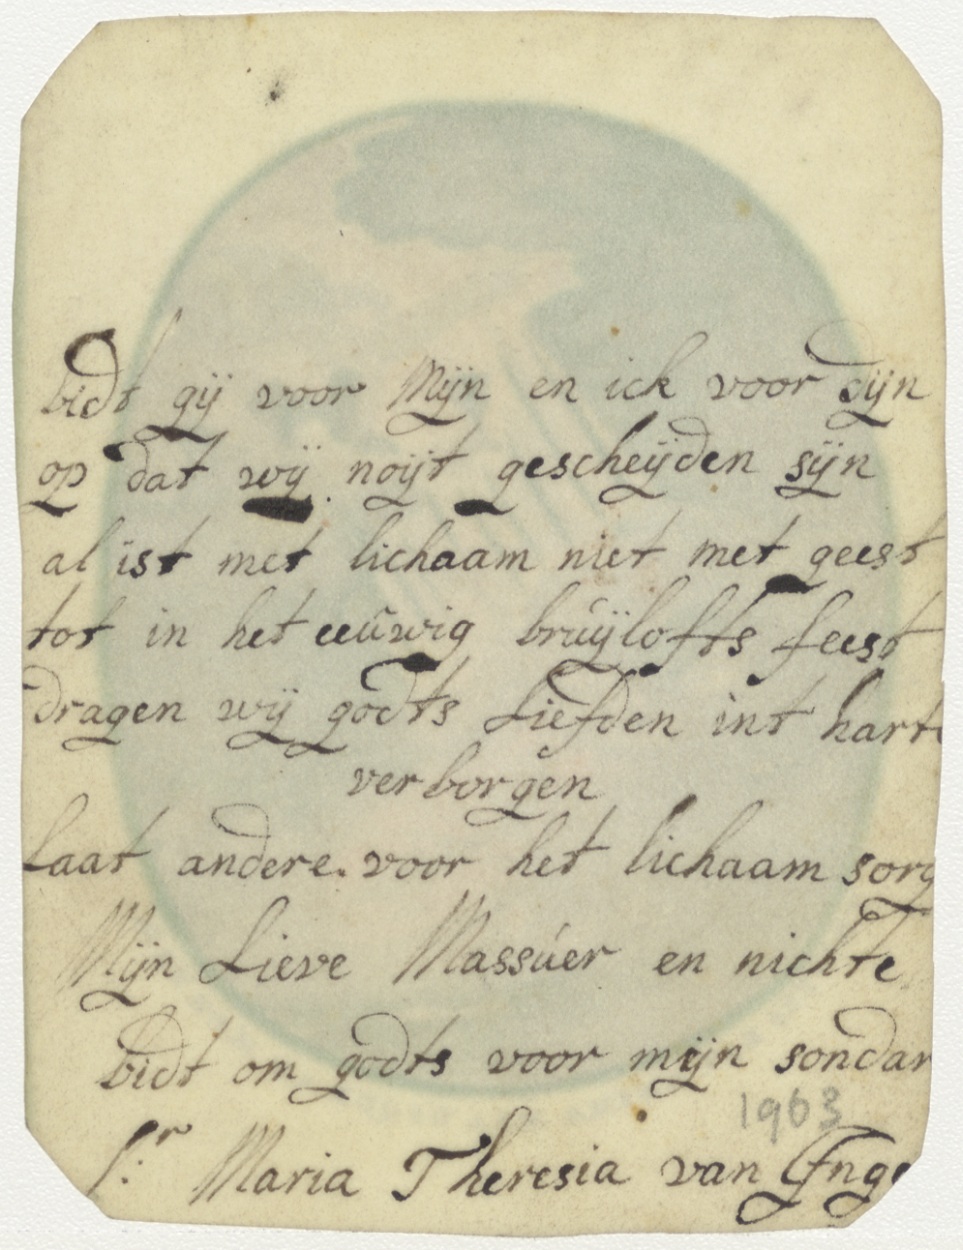 bidt gij voor Mijn en ick voor dijn
op dat wij noijt gescheijden sijn
al ist met lichaam niet met geest
tot in het eeúwig brúijlofts feest
dragen wij godts Liefden int harte
verborgen
Laat andere. voor het lichaam sorg
Mijn Lieve Massúer en nichte
bidt om godts voor mijn sondar
Sr: Maria Theresia van Enge
1963